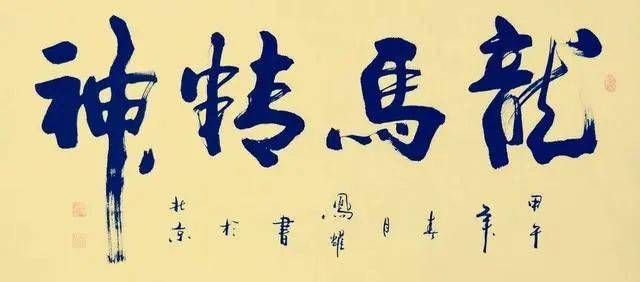 龍馬精神
甲午年春月鳳耀書於北京